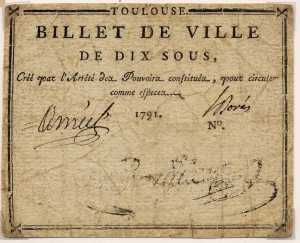 TOULOUSE.
BILLET DE VILLE
DE DIX SOUS,
Créé par l'Arrêté des Pouvoirs constitués, pour circuler
comme espèces.
1791.
N°.